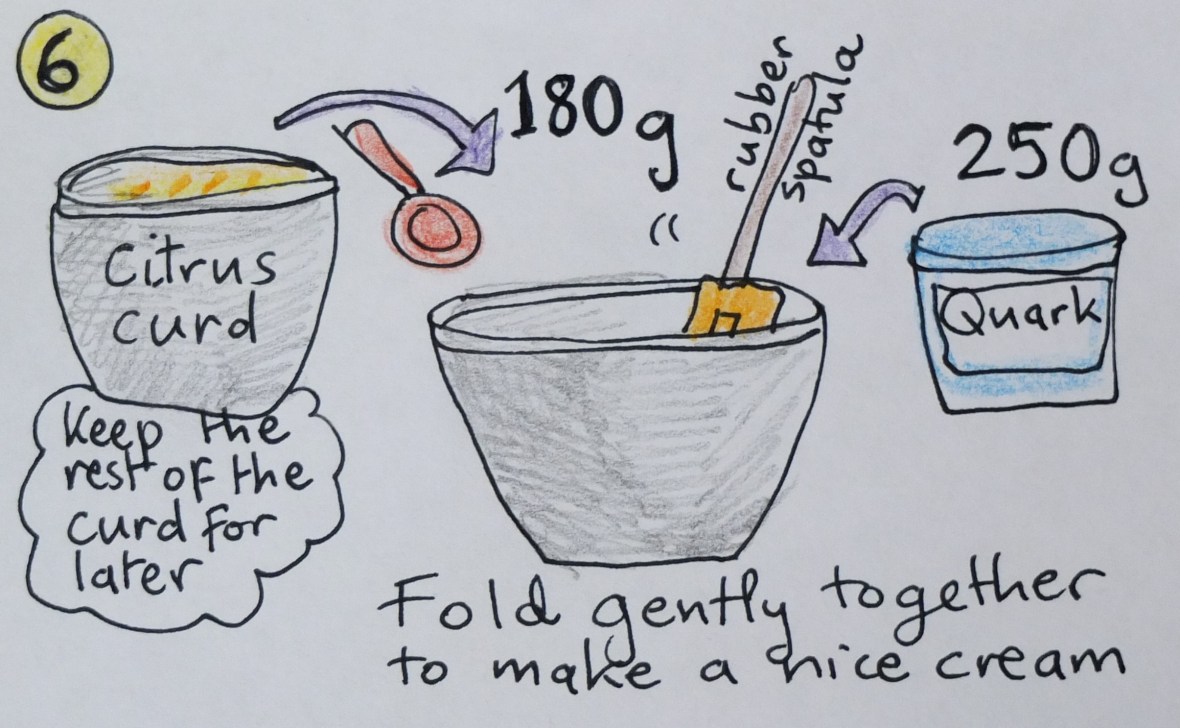 6
180g
rubber
spatula
250g
Citrus
curd
Quark
Keep the
rest of the
curd for
later
Fold gently together
to make a nice cream